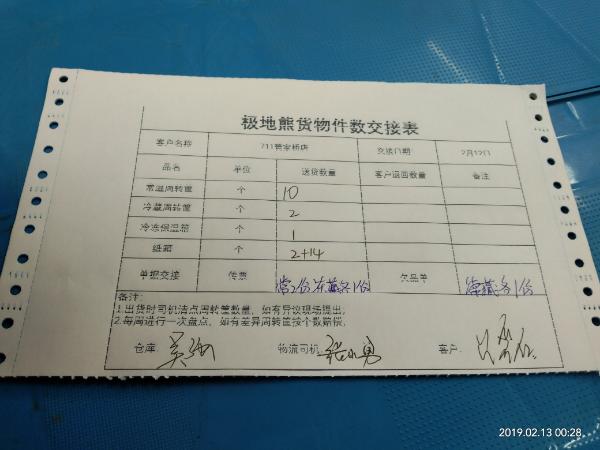 极地熊货物件数交接表
客户名称 711管家桥店 交接日期 2月12日
品名 单位 送货数量 客户退回数量 备注
常温周转筐 个 10
冷藏周转筐 个 2
冷冻保温箱 个 1
纸箱 个 2+14
单据交接 传票 常2份 各1份 欠品单 各1份
备注:
1.出货时司机清点周转筐数量,如有异议现场提出;
2.每周进行一次盘点,如有差异周转筐按个数赔偿;
仓库: 物流司机: 客户:
2019.02.13 00:28